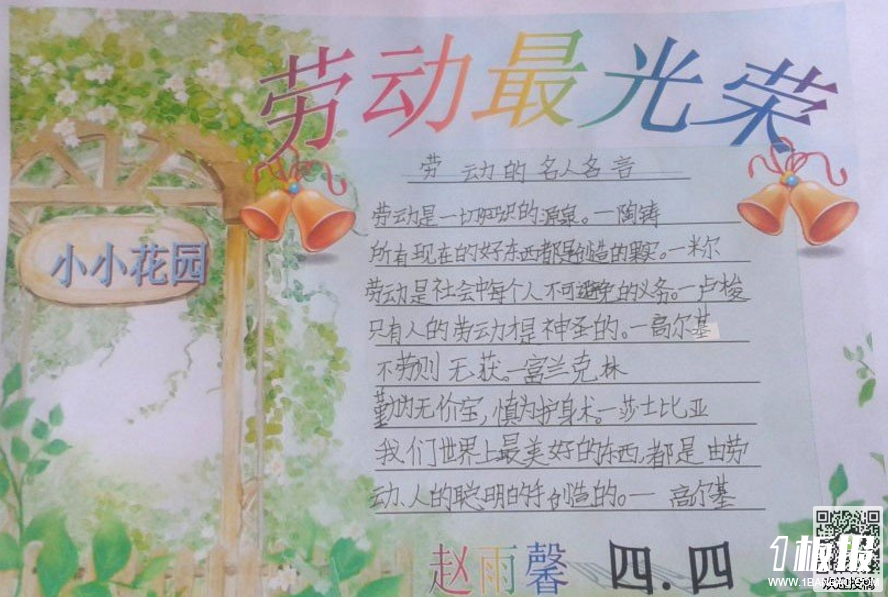 劳动最光荣
劳动的名人名言
小小花园
劳动是一切知识的源泉。一陶铸
所有现在的好东西都是创造的果实。一米尔
劳动是社会中每个人不可避免的义务。一卢梭
只有人的劳动才是神圣的。一高尔基
不劳则无获。一富兰克林
勤为无价宝,慎为护身术。一莎士比亚
我们世界上最美好的东西,都是由劳
动、人的聪明的手创造的。一高尔基
赵雨馨 四.四
1板报
WWW.1BANBAO.COM